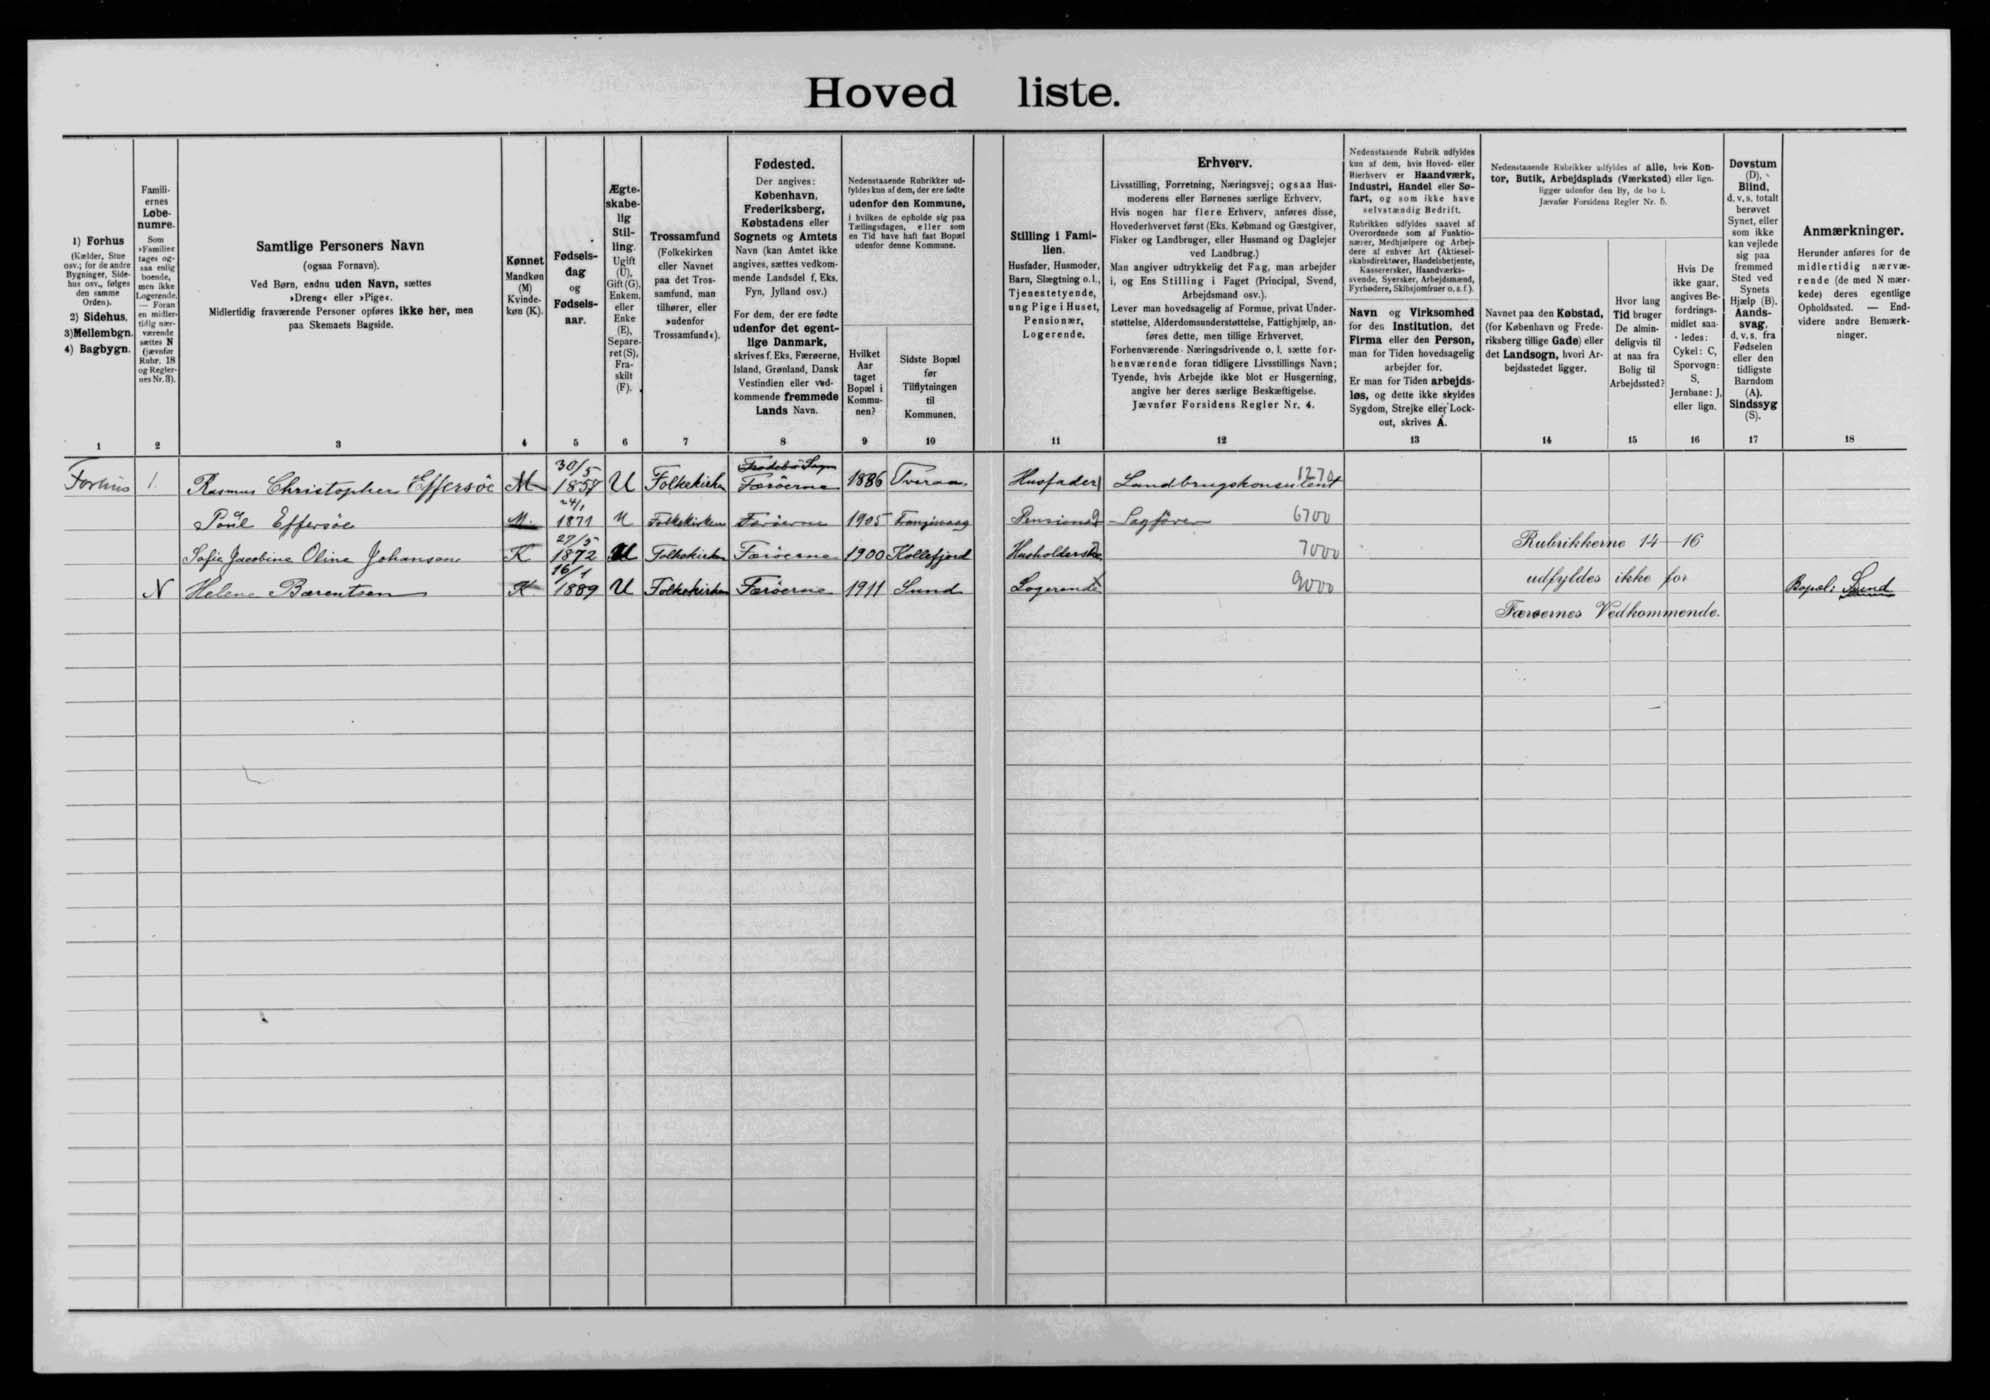 Hovedliste.
1) Forhus
(Kælder, Stue
osv.; for de andre
Bygninger, Side-
hus osv., følges
den samme
Orden).
2) Sidehus.
3) Mellembgn.
4) Bagbygn.
1
Famili-
ernes
Løbe-
numre.
Som
»Familie«
tages og-
saa enlig
boende,
men ikke
Logerende.
— Foran
en midler-
tidig nær-
værende
sættes N
(jævnfør
Rubr. 18
og Regler-
nes Nr. 3).
2
Samtlige Personers Navn
(ogsaa Fornavn).
Ved Børn, endnu uden Navn, sættes
»Dreng« eller »Pige«.
Midlertidig fraværende Personer opføres ikke her, men
paa Skemaets Bagside.
3
Kønnet
Mandkøn
(M)
Kvinde-
køn (K).
4
Fødsels-
dag
og
Fødsels-
aar.
5
Ægte-
skabe-
lig
Stil-
ling.
Ugift
(U),
Gift (G),
Enkem.
eller
Enke
(E),
Separe-
ret (S),
Fra-
skilt
(F).
6
Trossamfund
(Folkekirken
eller Navnet
paa det Tros-
samfund, man
tilhører, eller
»udenfor
Trossamfund«).
7
Fødested.
Der angives:
København,
Frederiksberg,
Købstadens eller
Sognets og Amtets
Navn (kan Amtet ikke
angives, sættes vedkom-
mende Landsdel f. Eks.
Fyn, Jylland osv.)
For dem, der ere fødte
udenfor det egent-
lige Danmark,
skrives f. Eks. Færøerne,
Island, Grønland, Dansk
Vestindien eller ved-
kommende fremmede
Lands Navn.
8
Nedenstaaende Rubrikker ud-
fyldes kun af dem, der ere fødte
udenfor den Kommune,
i hvilken de opholde sig paa
Tællingsdagen, eller som
en Tid have haft fast Bopæl
udenfor denne Kommune.
Hvilket
Aar
taget
Bopæl i
Kommu-
nen?
9
Sidste Bopæl
før
Tilflytningen
til
Kommunen.
10
Stilling i Fami-
lien.
Husfader, Husmoder,
Barn, Slægtning o. l.,
Tjenestetyende,
ung Pige i Huset,
Pensionær,
Logerende.
11
Erhverv.
Livsstilling, Forretning, Næringsvej; ogsaa Hus-
moderens eller Børnenes særlige Erhverv.
Hvis nogen har flere Erhverv, anføres disse,
Hovederhvervet først (Eks. Købmand og Gæstgiver,
Fisker og Landbruger, eller Husmand og Daglejer
ved Landbrug.)
Man angiver udtrykkelig det Fag, man arbejder
i, og Ens Stilling i Faget (Principal, Svend,
Arbejdsmand osv.).
Lever man hovedsagelig af Formue, privat Under-
støttelse, Alderdomsunderstøttelse, Fattighjælp, an-
føres dette, men tillige Erhvervet.
Forhenværende Næringsdrivende o. l. sætte for-
henværende foran tidligere Livsstillings Navn;
Tyende, hvis Arbejde ikke blot er Husgerning,
angive her deres særlige Beskæftigelse.
Jævnfør Forsidens Regler Nr. 4.
12
Nedenstaaende Rubrik udfyldes
kun af dem, hvis Hoved- eller
Bierhverv er Haandværk,
Industri, Handel eller Sø-
fart, og som ikke have
selvstændig Bedrift.
Rubrikken udfyldes saavel af
Overordnede som af Funktio-
nærer, Medhjælpere og Arbej-
dere af enhver Art (Aktiesel-
skabsdirektører, Handelsbetjente,
Kasserersker, Haandværks-
svende, Syersker, Arbejdsmænd,
Fyrbødere, Skibsjomfruer o. s. f.).
Navn og Virksomhed
for den Institution, det
Firma eller den Person,
man for Tiden hovedsagelig
arbejder for.
Er man for Tiden arbejds-
løs, og dette ikke skyldes
Sygdom, Strejke eller Lock-
out, skrives A.
13
Nedenstaaende Rubrikker udfyldes af alle, hvis Kon-
tor, Butik, Arbejdsplads (Værksted) eller lign.
ligger udenfor den By, de bo i.
Jævnfør Forsidens Regler Nr. 5.
Navnet paa den Købstad,
(for København og Frede-
riksberg tillige Gade) eller
det Landsogn, hvori Ar-
bejdsstedet ligger.
14
Hvor lang
Tid bruger
De almin-
deligvis til
at naa fra
Bolig til
Arbejdssted?
15
Hvis De
ikke gaar,
angives Be-
fordrings-
midlet saa-
ledes:
Cykel: C,
Sporvogn:
S,
Jernbane: J,
eller lign.
16
Døvstum
(D),
Blind,
d. v. s. totalt
berøvet
Synet, eller
som ikke
kan vejlede
sig paa
fremmed
Sted ved
Synets
Hjælp (B).
Aands-
svag,
d. v. s. fra
Fødselen
eller den
tidligste
Barndom
(A).
Sindssyg
(S).
17
Anmærkninger.
Herunder anføres for de
midlertidig nærvæ-
rende (de med N mær-
kede) deres egentlige
Opholdssted. — End-
videre andre Bemærk-
ninger.
18
Forhus 1. Rasmus Christopher Effersöe M 30/5 1857 U Folkekirken Færöerne 1886 Tveraa Husfader Landbrugskonsulent 1270
Poul Effersöe M. 24/1 1871 U Folkekirken Færöerne 1905 Frangisvaag Pensionær Sagförer 6700
Sofie Jacobine Oline Johansen K 27/5 1872 U Folkekirken Færöerne 1900 Kollefjord Husholderske 7000 Rubrikkerne 14-16
N Helene Bærentsen K 16/1 1889 U Folkekirken Færöerne 1911 Sund Logerende 9000 udfyldes ikke for Bopæl: Sund
Færøernes Vedkommende.